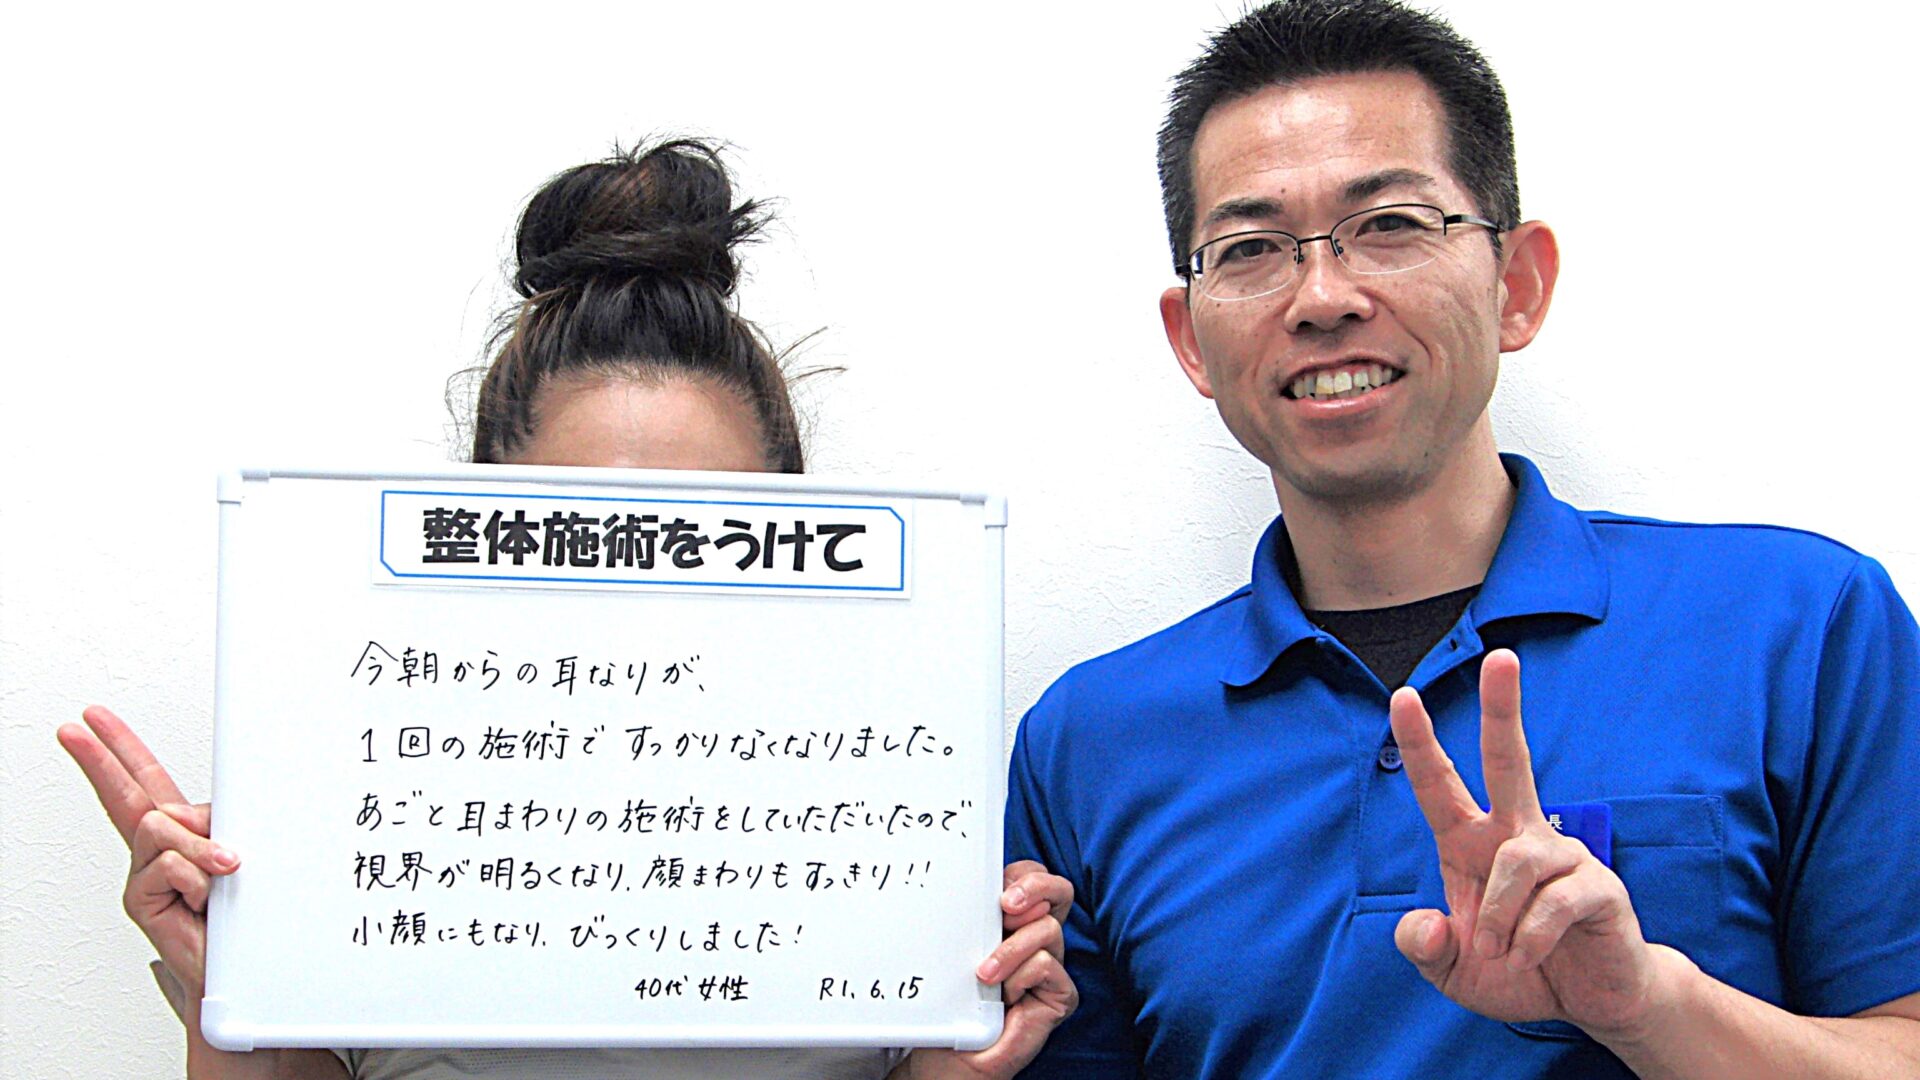 整体施術をうけて
今朝からの耳なりが、
1回の施術ですっかりなくなりました。
あごと耳まわりの施術をしていただいたので、
視界が明るくなり、顔まわりもすっきり!!
小顔にもなり、びっくりしました!
40代女性 R1.6.15
長